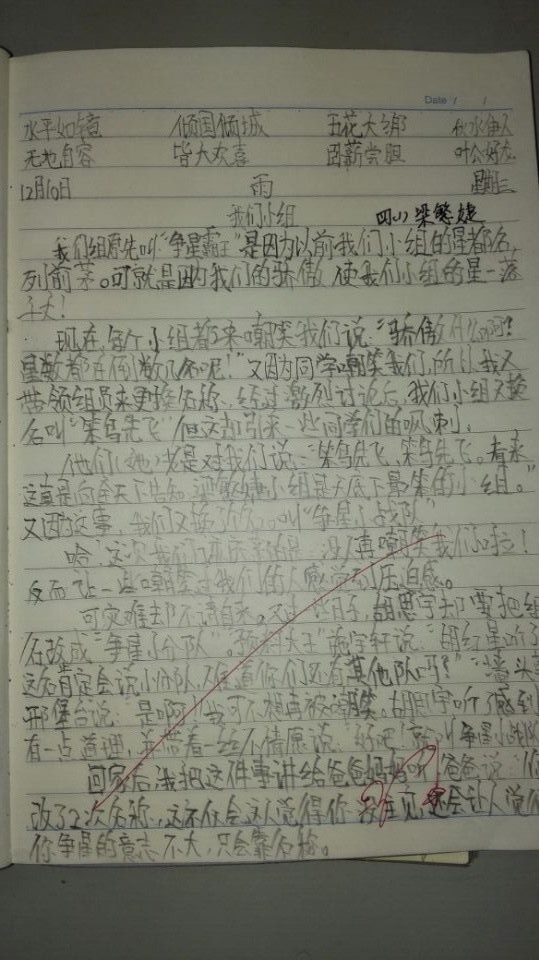 Date / /
水平如镜 倾国倾城 五花大绑
无地自容 皆大欢喜 卧薪尝胆 叶公好龙
12月10日 雨 星期三
我们小组 四(1)梁
我们组原先叫“争星霸王”是因为以前我们小组的星都名
列前茅。可就是因为我们的骄傲,使我们小组的星一落
千丈!
现在,每个小组都来嘲笑我们说:“骄傲什么啊?
星数都在倒数几名呢!”又因为同学嘲笑我们,所以我又
带领组员来更换名称,经过激烈讨论后,我们小组又换
名叫“笨鸟先飞”但这却引来一些同学们的讽刺,
他们(她)老是对我们说:“笨鸟先飞,笨鸟先飞。看来
这真是向天下告知,梁小组是天底下最笨的小组。”
又因为这事,我们又换了名。叫“争星小战队”
哈,这次我们庆幸的是:没人再嘲笑我们啦!
反而让一些嘲笑过我们的人感觉到压迫感。
可灾难却不请自来。胡思宇却要把组
名改成“争星小分队”。施宇轩说:“胡红星听了
这名肯定会说小分队,难道你们还有其他队吗?”墙头草
邢保台说:“是啊!我可不想再被嘲笑。胡思宇听了感到
有一点道理,并带着一丝不情愿说:“好吧!就叫争星小战队
回家后,我把这件事讲给爸爸妈妈听,爸爸说:“你
改了2次名称,这不仅会让人觉得你,还会让人觉得
你争星的意志不大,只会靠名称。